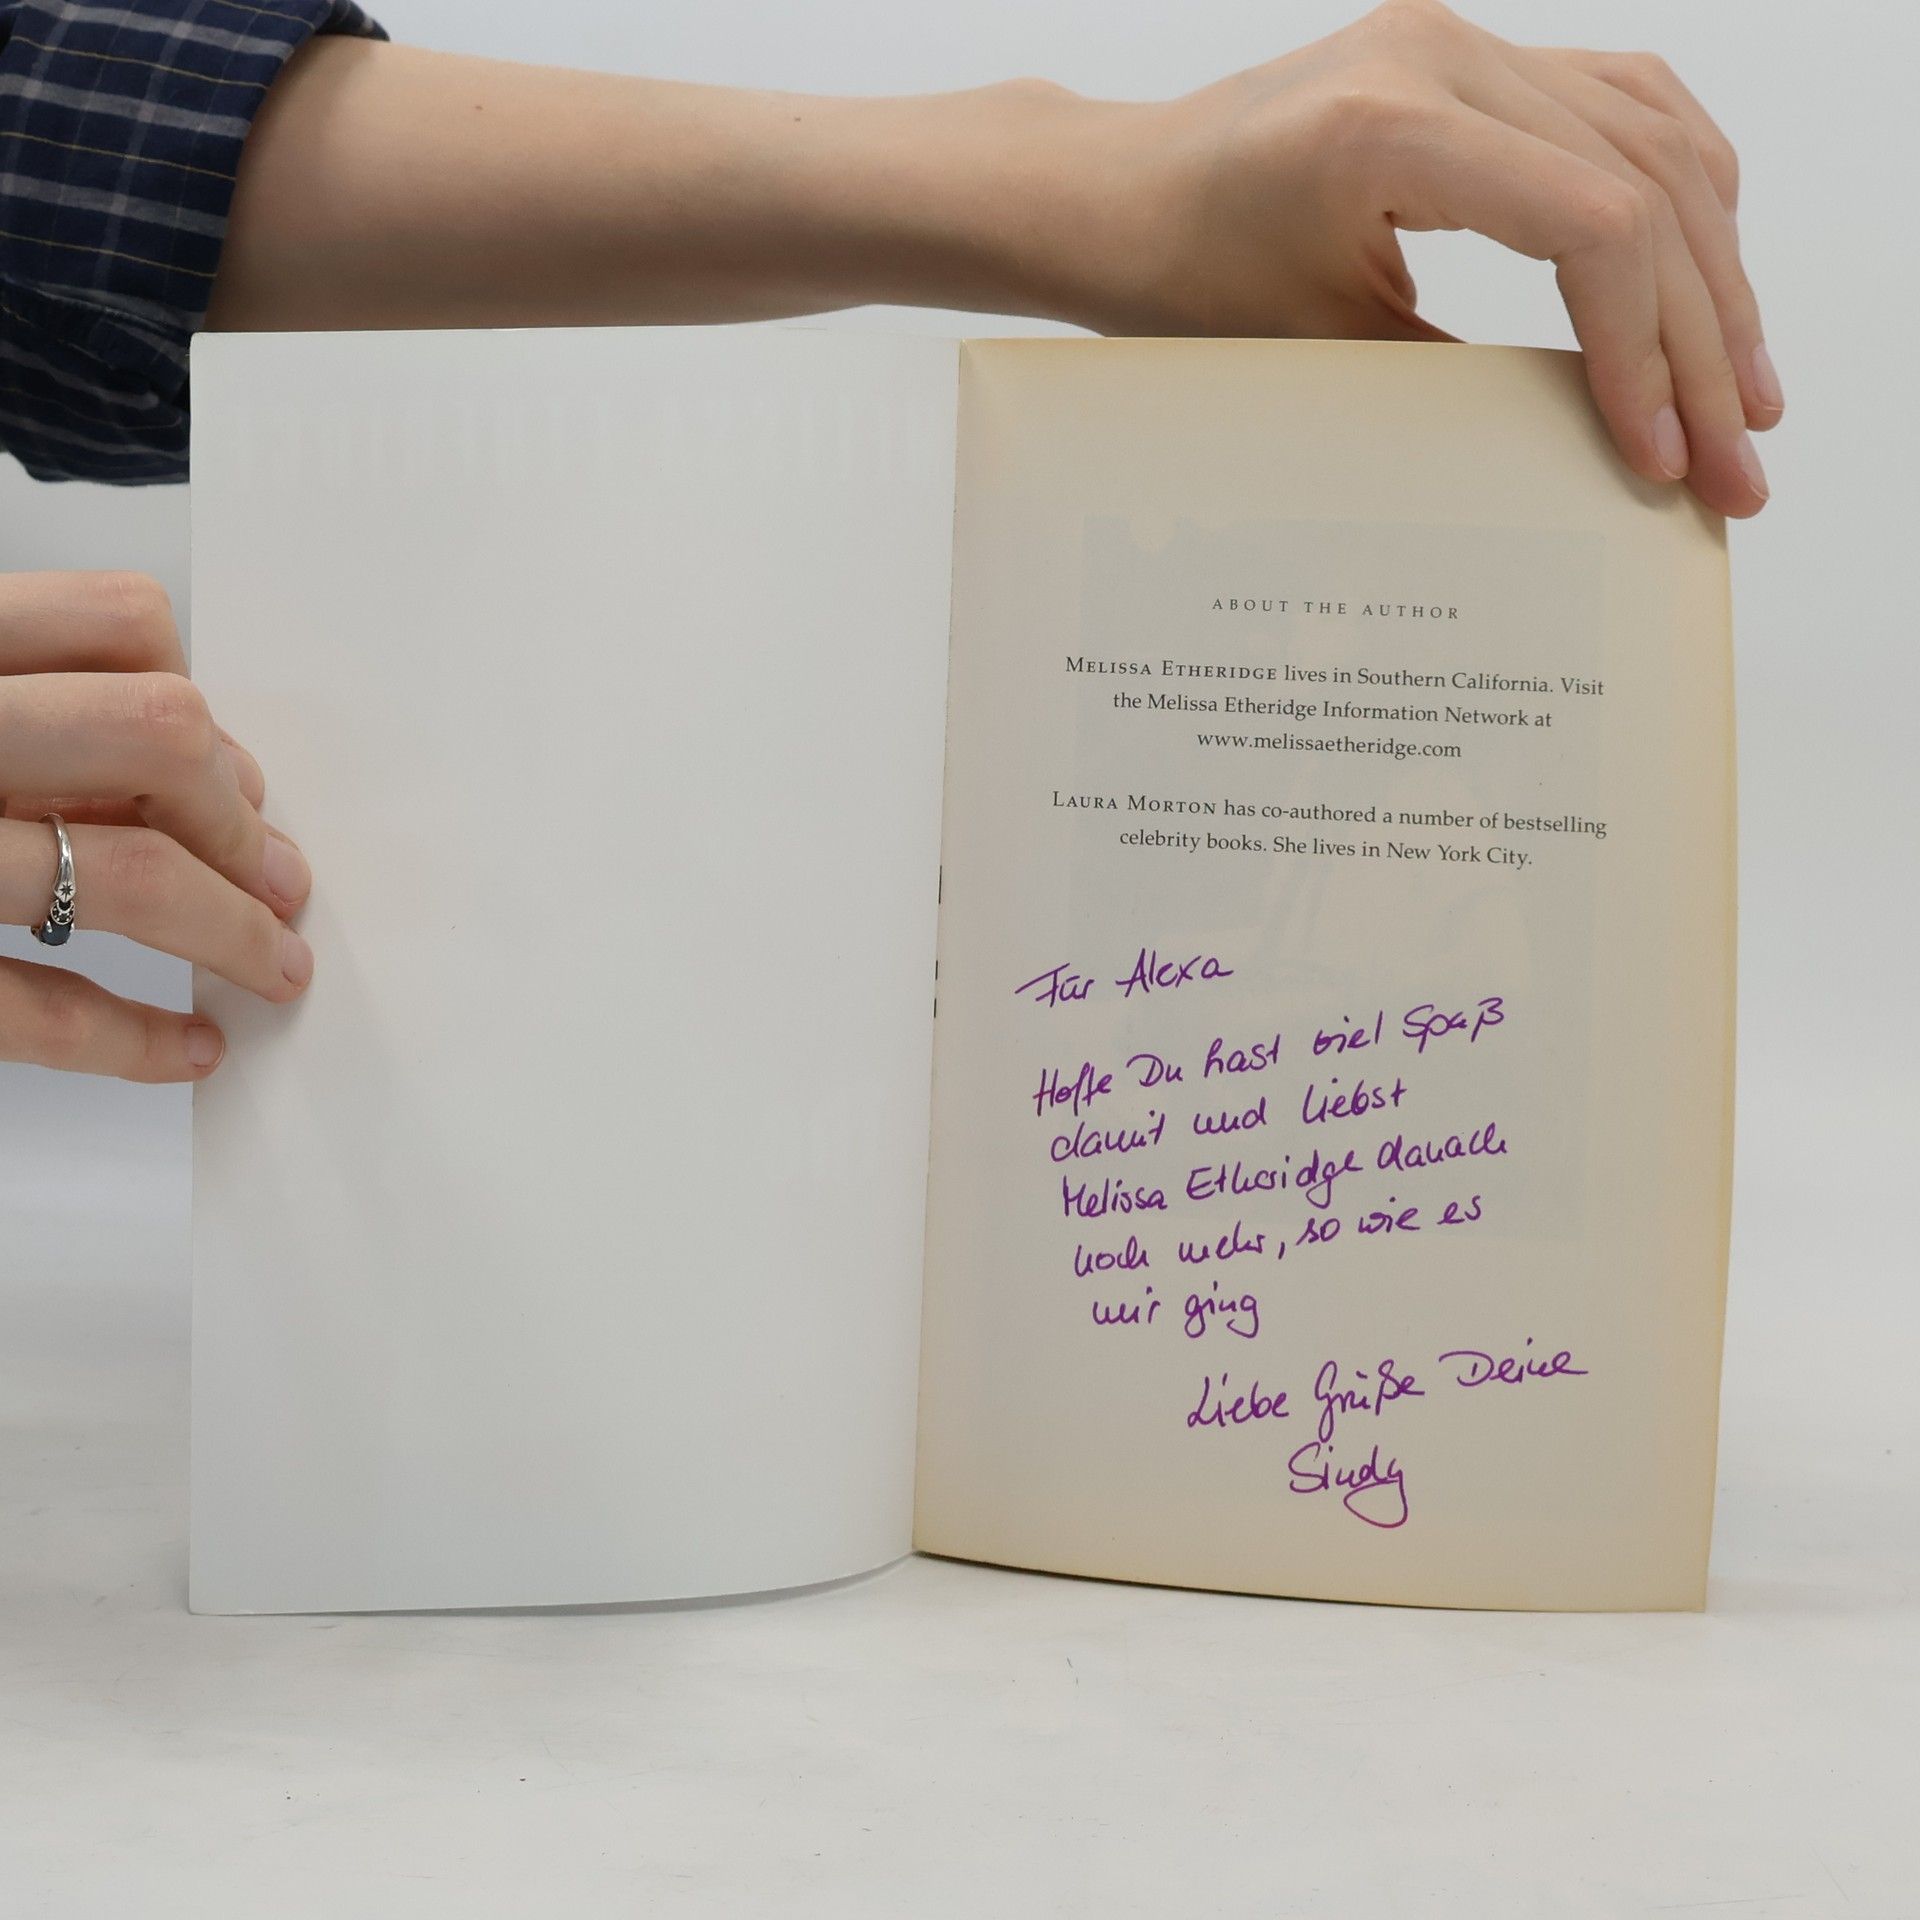 ABOUT THE AUTHOR
MELISSA ETHERIDGE lives in Southern California. Visit
the Melissa Etheridge Information Network at
www.melissaetheridge.com
LAURA MORTON has co-authored a number of bestselling
celebrity books. She lives in New York City.
Für Alexa
Hoffe Du hast viel Spaß
damit und liebst
Melissa Etheridge danach
noch mehr, so wie es
mir ging
Liebe Grüße Deine
Sindy